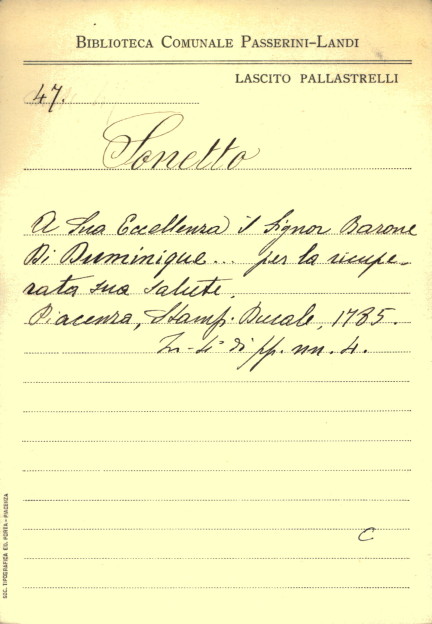 BIBLIOTECA COMUNALE PASSERINI-LANDI
LASCITO PALLASTRELLI
47.
Sonetto
A Sua Eccellenza il Signor Barone
Di Duminique... per la ricupe-
rata sua salute.
Piacenza, Stamp. Ducale, 1785.
In-4° di pp. nn. 4.
C
SOC. TIPOGRAFICA ED. PORTA - PIACENZA